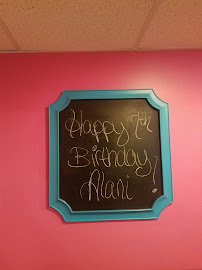 Happy 7th
Birthday,
Alani!